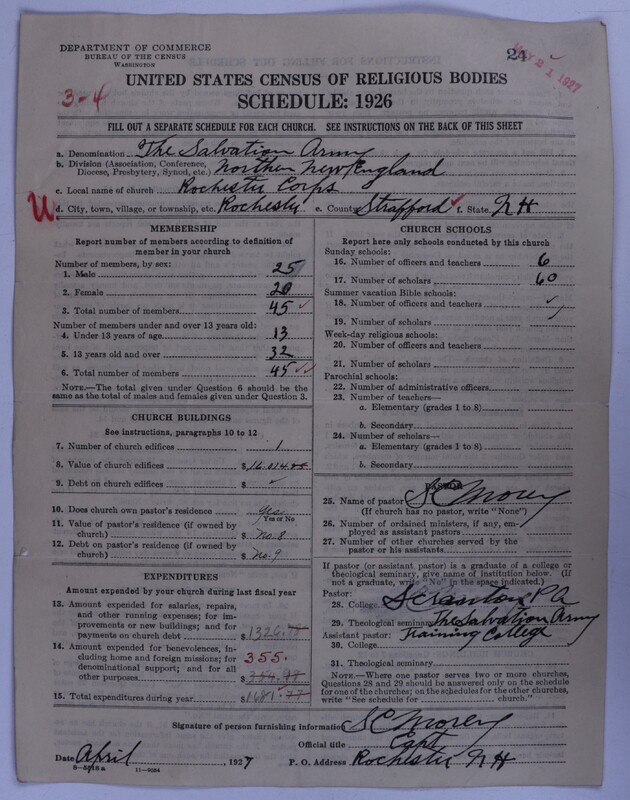 DEPARTMENT OF COMMERCE
BUREAU OF THE CENSUS
WASHINGTON
24
MAY 21 1927
3-4
UNITED STATES CENSUS OF RELIGIOUS BODIES
SCHEDULE: 1926
FILL OUT A SEPARATE SCHEDULE FOR EACH CHURCH. SEE INSTRUCTIONS ON THE BACK OF THIS SHEET
a. Denomination The Salvation Army
b. Division (Association, Conference, Diocese, Presbytery, Synod, etc.) Northern New England
c. Local name of church Rochester Corps
U d. City, town, village, or township, etc. Rochester e. County Strafford f. State NH
MEMBERSHIP
Report number of members according to definition of
member in your church
Number of members, by sex:
1. Male 25
2. Female 20
3. Total number of members 45 ✓
Number of members under and over 13 years old:
4. Under 13 years of age 13
5. 13 years old and over 32
6. Total number of members 45 ✓
NOTE.—The total given under Question 6 should be the
same as the total of males and females given under Question 3.
CHURCH BUILDINGS
See instructions, paragraphs 10 to 12
7. Number of church edifices 1
8. Value of church edifices $16,014.
9. Debt on church edifices $ ✓
10. Does church own pastor's residence Yes
Yes or No
11. Value of pastor's residence (if owned by
church) $ No. 8
12. Debt on pastor's residence (if owned by
church) $ No. 9
EXPENDITURES
Amount expended by your church during last fiscal year
13. Amount expended for salaries, repairs,
and other running expenses; for im-
provements or new buildings; and for
payments on church debt $1326.
14. Amount expended for benevolences, in-
cluding home and foreign missions; for 355.
denominational support; and for all
other purposes $
15. Total expenditures during year $1681.77
CHURCH SCHOOLS
Report here only schools conducted by this church
Sunday schools:
16. Number of officers and teachers 6
17. Number of scholars 60
Summer vacation Bible schools:
18. Number of officers and teachers ✓
19. Number of scholars
Week-day religious schools:
20. Number of officers and teachers
21. Number of scholars
Parochial schools:
22. Number of administrative officers
23. Number of teachers—
a. Elementary (grades 1 to 8)
b. Secondary
24. Number of scholars—
a. Elementary (grades 1 to 8)
b. Secondary
PASTOR
25. Name of pastor S C Morey
(If church has no pastor, write "None")
26. Number of ordained ministers, if any, em-
ployed as assistant pastors
27. Number of other churches served by the
pastor or his assistants
If pastor (or assistant pastor) is a graduate of a college or
theological seminary, give name of institution below. (If
not a graduate, write "No" in the space indicated.)
Pastor:
28. College Scranton PA
29. Theological seminary The Salvation Army
Assistant pastor: Training College
30. College
31. Theological seminary
NOTE.—Where one pastor serves two or more churches,
Questions 28 and 29 should be answered only on the schedule
for one of the churches; on the schedules for the other churches,
write "See schedule for church."
Signature of person furnishing information S C Morey
Official title Capt
Date April, 1927 P. O. Address Rochester NH
8—5318a 11—9064